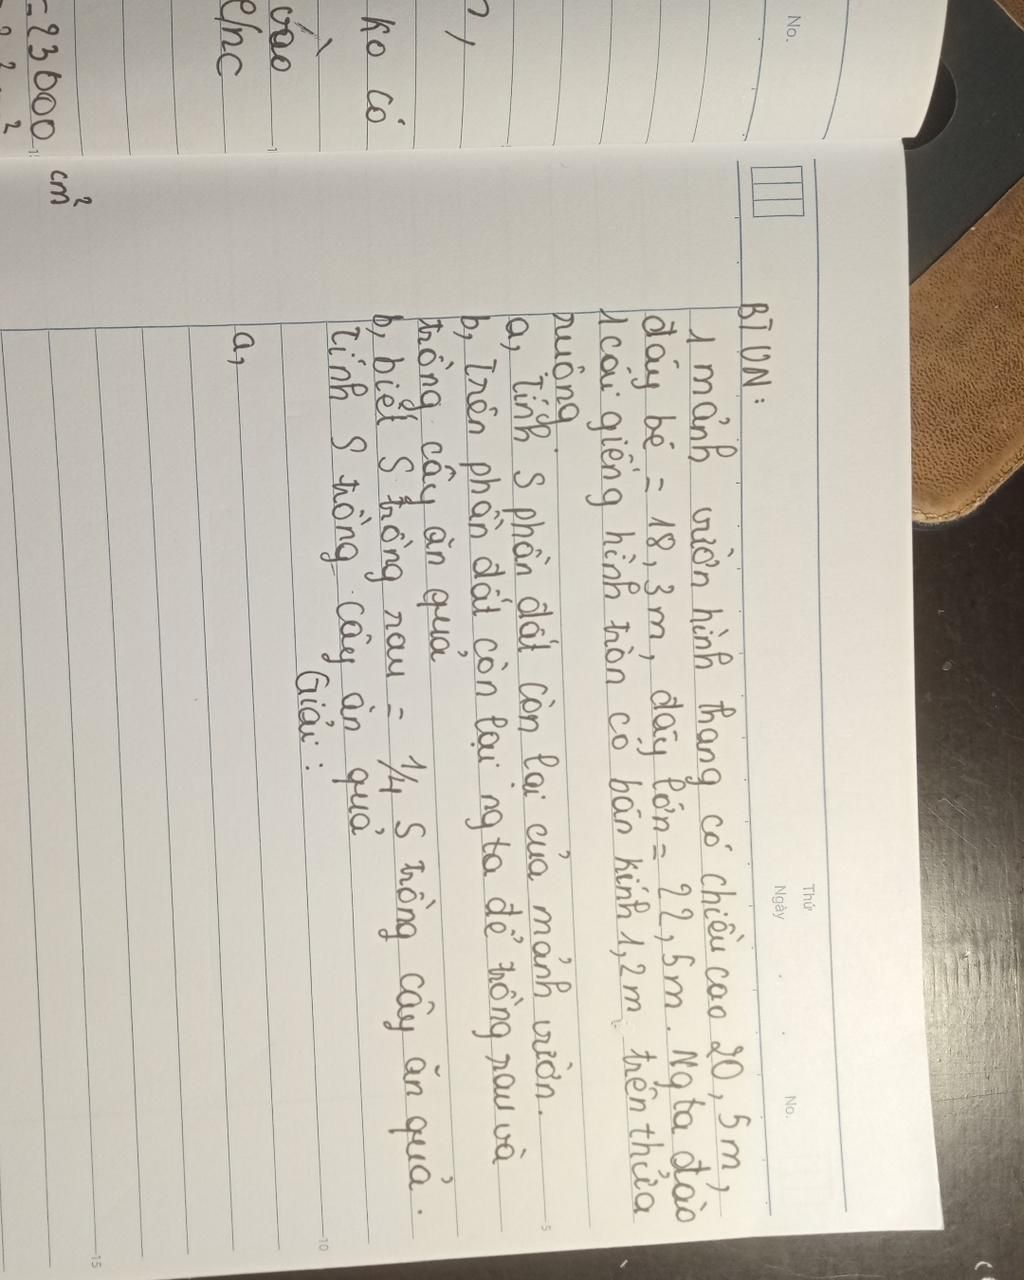 No.
ko có
vào
e/nc
=23000
cm²
Thứ
Ngày
No.
BTVN:
1 mảnh vườn hình thang có chiều cao 20,5m,
đáy bé = 18,3m, đáy lớn = 22,5m. Ng ta đào
1 cái giếng hình tròn có bán kính 1,2m trên thửa
ruộng
a, Tính S phần đất còn lại của mảnh vườn.
b, Trên phần đất còn lại ng ta để trồng rau và
trồng cây ăn quả
b, biết S trồng rau = 1/4 S trồng cây ăn quả.
Tính S trồng cây ăn quả
Giải:
a,
5
10
15